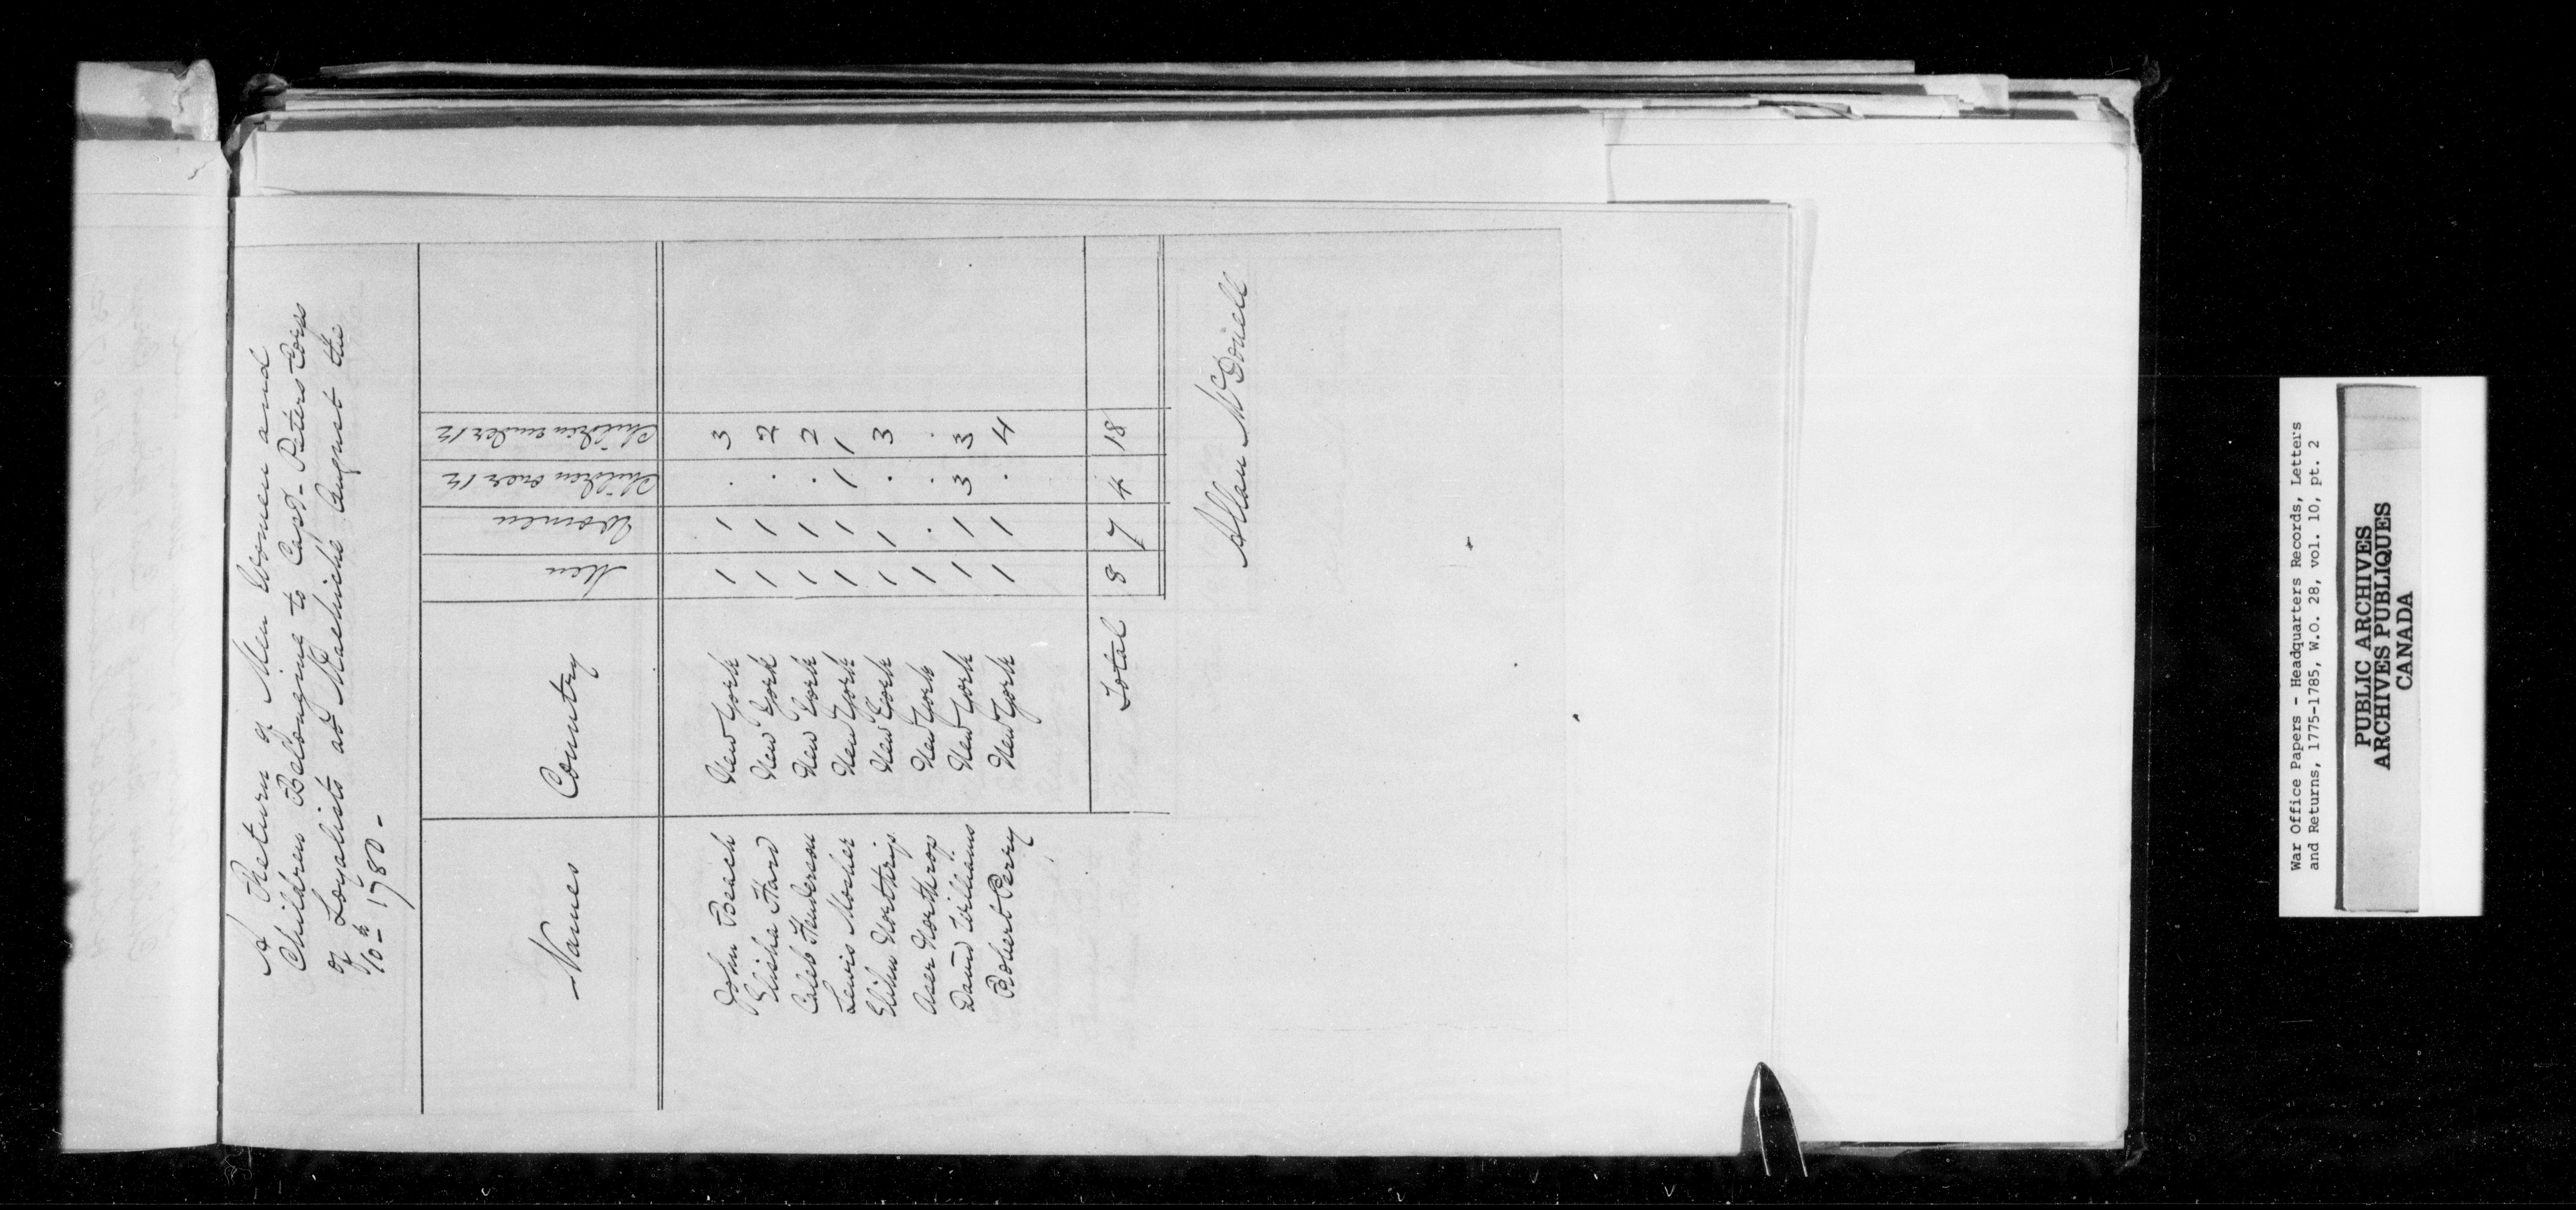 A Return of Men Women and
Children Belonging to Capt- Peters Corps
of Loyalists at Machiche August the
10-th 1780-
Names Country Men Women Children over 12 Children under 12
John Beach New York 1 1 . 3
Elisha Hard New York 1 1 . 2
Caleb Henderson New York 1 1 . 2
Lewis Mosher New York 1 1 1 1
Elihu Northrip New York 1 1 . 3
Aser Northrop New York 1 . . .
David Williams New York 1 1 3 3
Robert Perry New York 1 1 . 4
Total 8 7 4 18
Allan McDonell
War Office Papers - Headquarters Records, Letters
and Returns, 1775-1785, W.O. 28, vol. 10, pt. 2
PUBLIC ARCHIVES
ARCHIVES PUBLIQUES
CANADA